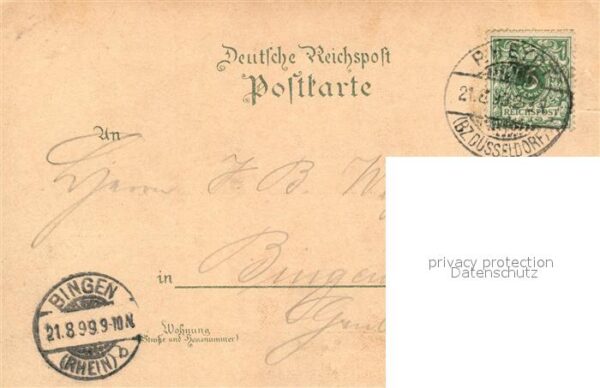 Deutsche Reichspost
Postkarte
RHEYDT
21.8.99.
(BZ.DUSSELDORF)
REICHSPOST
An
Herrn H. B. W
in Bingen
Wohnung
(Straße und Hausnummer)
BINGEN
21.8.99.9-10N.
(RHEIN) b
privacy protection
Datenschutz